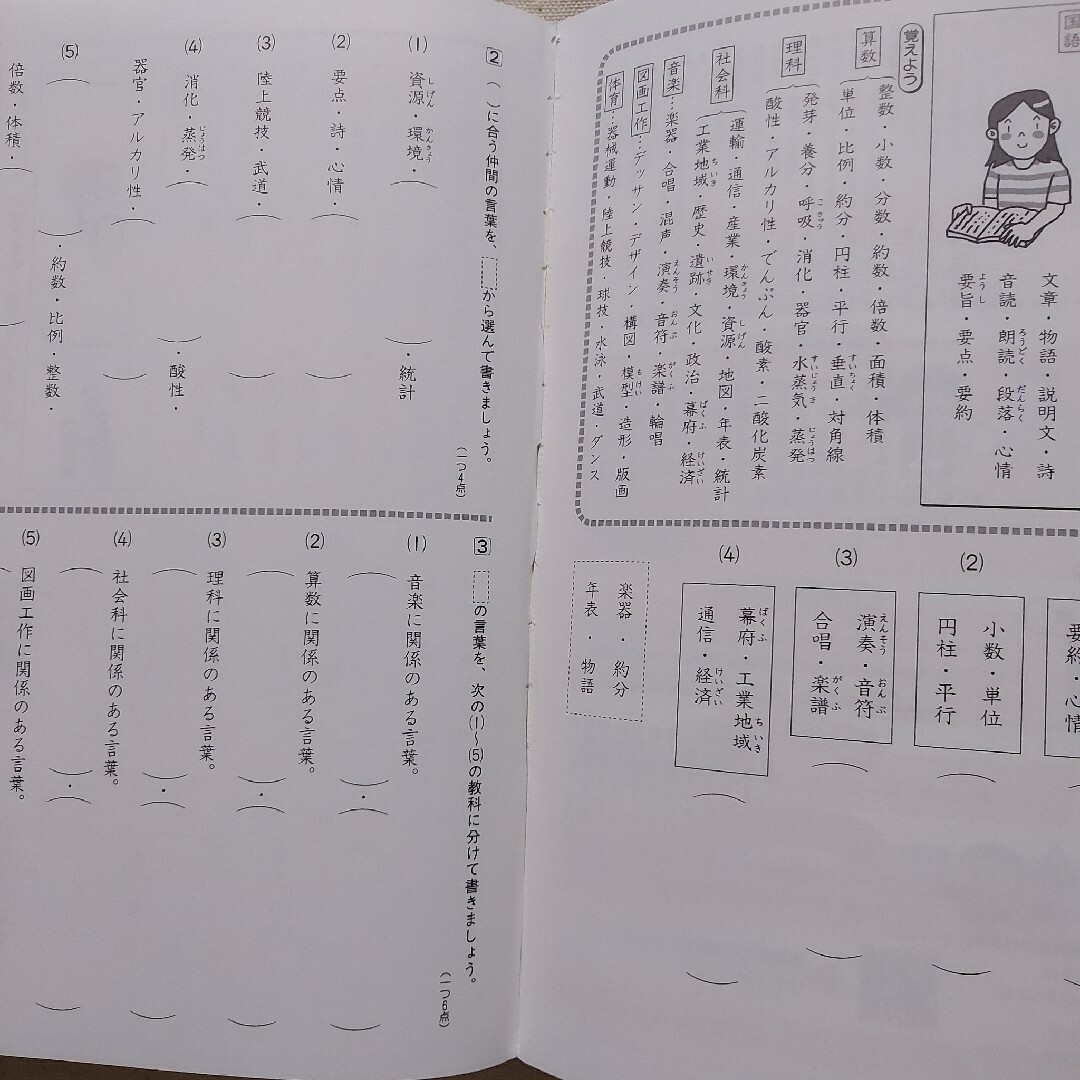 国語
文章・物語・説明文・詩
音読・朗読・段落・心情
要旨・要点・要約
覚えよう
算数
整数・小数・分数・約数・倍数・面積・体積
単位・比例・約分・円柱・平行・垂直・対角線
理科
発芽・養分・呼吸・消化・器官・水蒸気・蒸発
酸性・アルカリ性・でんぷん・酸素・二酸化炭素
社会科
運輸・通信・産業・環境・資源・地図・年表・統計
工業地域・歴史・遺跡・文化・政治・幕府・経済
音楽…楽器・合唱・混声・演奏・音符・楽譜・輪唱
図画工作…デッサン・デザイン・構図・模型・造形・版画
体育…器械運動・陸上競技・球技・水泳・武道・ダンス
要約・心情
(2)
小数・単位
円柱・平行
(3)
演奏・音符
合唱・楽譜
(4)
幕府・工業地域
通信・経済
楽器・約分
年表・物語
2 ( )に合う仲間の言葉を、 から選んで書きましょう。
(一つ4点)
(1) 資源・環境・( )・統計
(2) 要点・詩・心情・( )
(3) 陸上競技・武道・( )
(4) 消化・蒸発・( )・酸性・
器官・アルカリ性・( )
(5) ( )・約数・比例・整数・
倍数・体積・( )
3 の言葉を、次の(1)〜(5)の教科に分けて書きましょう。
(一つ6点)
(1) 音楽に関係のある言葉。
( )・( )
(2) 算数に関係のある言葉。
( )・( )
(3) 理科に関係のある言葉。
( )・( )
(4) 社会科に関係のある言葉。
( )・( )
(5) 図画工作に関係のある言葉。